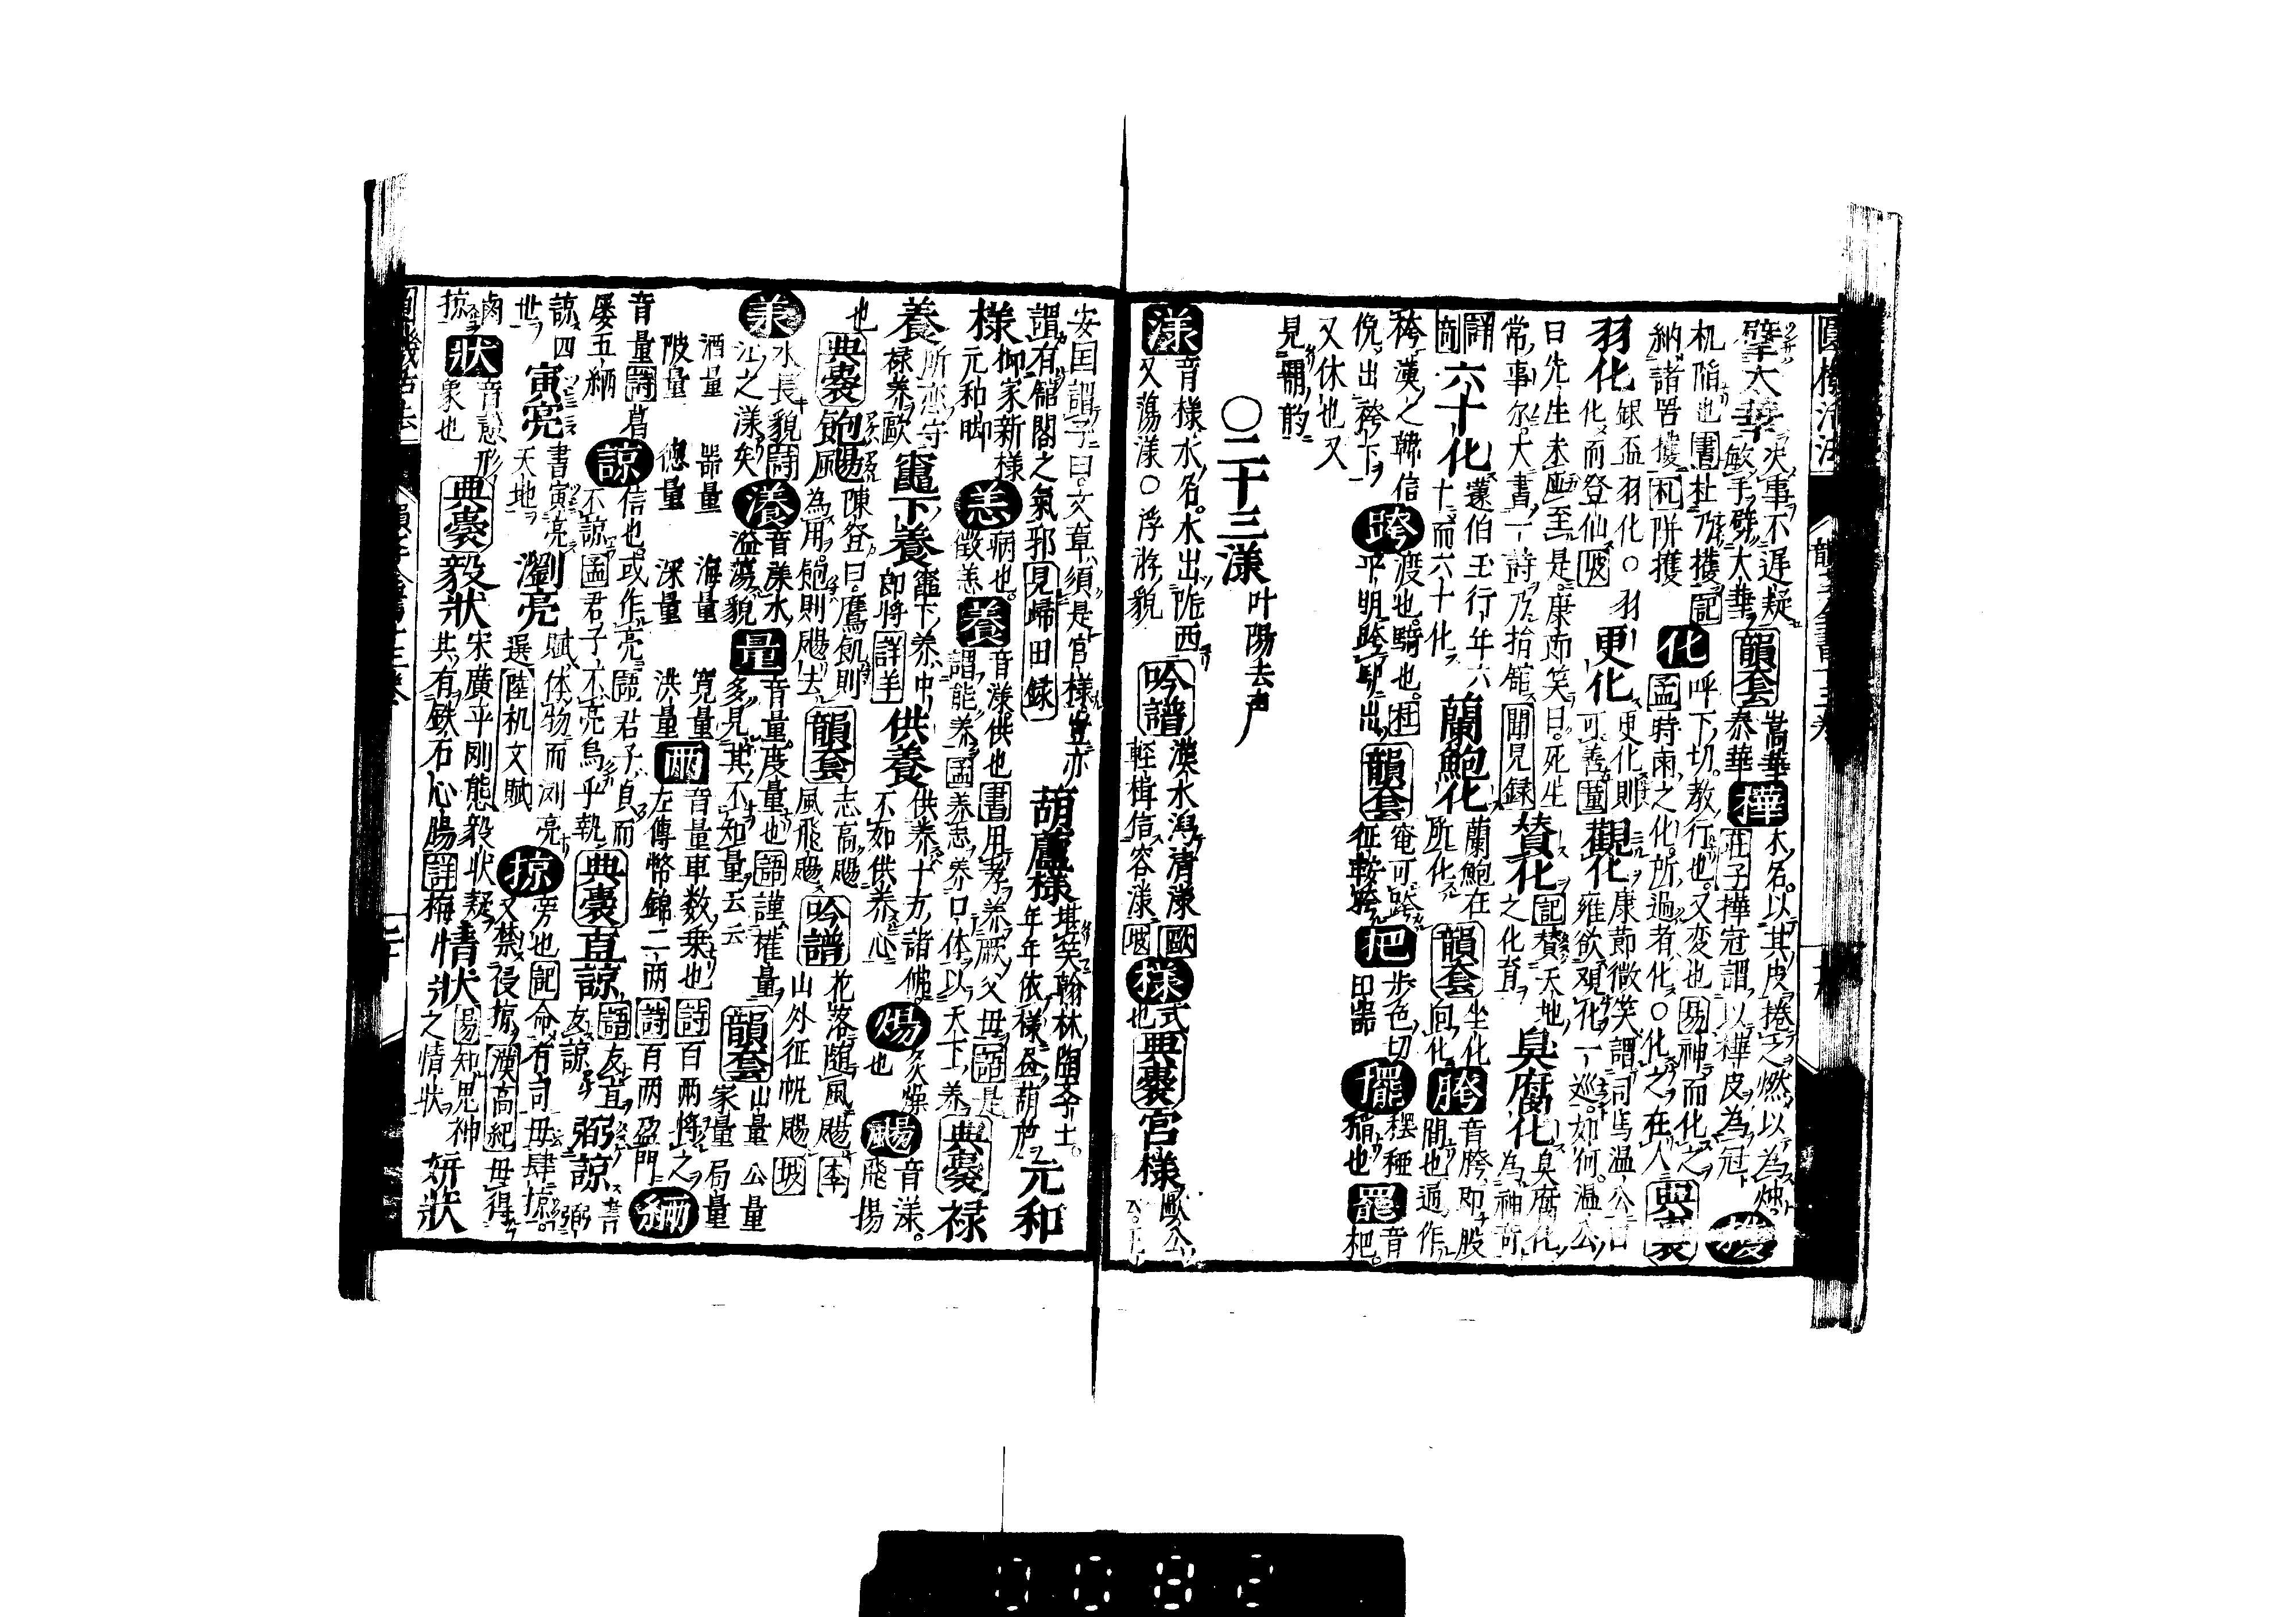 擘大華 決事不遲疑 敏手劈大華 韻套 嵩華 泰華 樺 木名以其皮捲之燃以為燭 莊子樺冠謂以樺皮為冠 擭
机陷也 書杜乃擭 記
納諸罟擭 札阱擭 化 呼下切教行也又変也 易神而化之 孟時雨之化所過者化○化之在人 典裏
羽化 銀盃羽化○羽化而登仙 坡 更化 更化則可善 董 觀化 康節微笑謂司馬温公曰雍欲観化一巡如何温公
曰先生未至是康節笑曰死生
常事尓大書一詩乃抬舘 聞見録 賛化 記賛天地之化育 臭腐化 臭腐化為神奇
詳 六十化 蘧伯玉行年六十而六十化 蘭鮑化 蘭鮑在所化 韻套 坐化 向化 胯 音胯即股間也過作
袴漢之韓信
俛出袴下 跨 渡也騎也 杜平明跨驢出 韻套 奄可跨 征鞍跨 把 歩色切 田器 䆉 䆉稏稲也 罷 音杷
又休也又
見禡韵
○二十三漾 叶陽去声
漾 音様水名水出隴西 又蕩漾○浮游貌 吟譜 漢水潟清漾 歐 輕楫信容漾 坡 様 式也 典裏 宮様 歐公
安国謂予曰文章須是官様豈亦
謂有舘閣之氣邪 見歸田録 葫蘆様 堪笑翰林陶学士 年年依様画葫芦 元和
様 柳家新様元和脚 恙 病也 微恙 養 音漾供也 書用孝養厥父毋 語是謂能養 孟養志養口体以天下養 典裏 禄
養 所恋守禄養 歐 竈下養 竈下養中郎将 詳羊 供養 供養十方諸佛不如供養心 煬 炙燥也 颺 音漾飛揚
也 典裏 飽颺 陳登曰鷹飢則為用飽則颺去 韻套 志高颺 風飛颺 吟譜 花落随風颺 李 山外征帆颺 坡
羕 水長貌 詩江之漾矣 瀁 音漾水溢蕩貌 量 音量度量也 語謹權量 多見其不知量云云 韻套 山量 公量 家量 局量
酒量 器量 海量 寛量
陂量 徳量 深量 洪量 兩 音量車数乗也 詩百兩将之 左傳幣錦二兩 詩百兩盈門 緉
音量 詩葛
屡五緉 諒 信也或作亮 語君子貞而不諒 孟君子不亮烏乎執 典裏 直諒 語友直友諒 弼諒 書弼
諒四
世 寅亮 書寅亮天地 瀏亮 賦体物而瀏亮 選陸机文賦 掠 旁也 記命有司毋肆掠 又禁侵掠 漢高紀毋得
鹵
掠 狀 音意形象也 典裏 毅狀 宋廣平剛態毅状疑其有鉄石心腸 詳梅 情狀 易知鬼神之情状 妍狀
0082